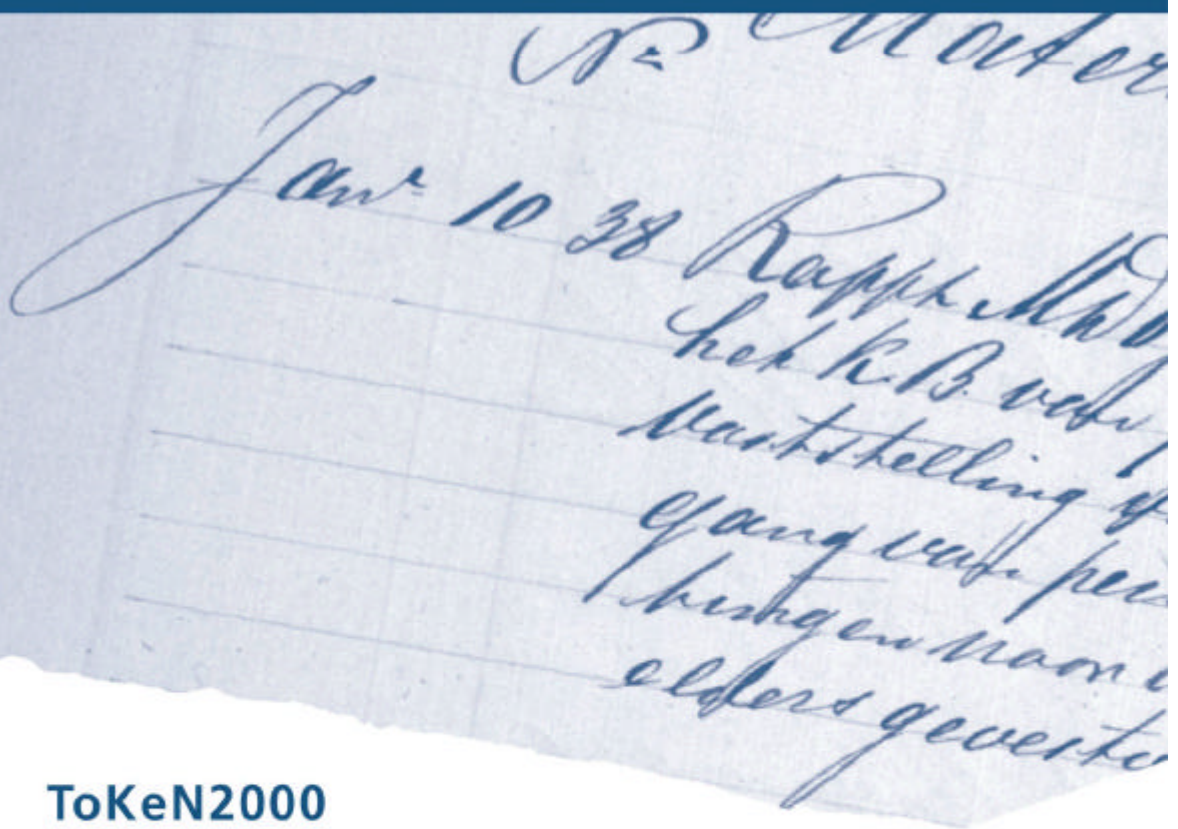 No Mater
Janr 10 38 Rapph. MvO
het K.B. van
vaststelling
gang van pen
bingen naar
elders gevesti
ToKeN2000